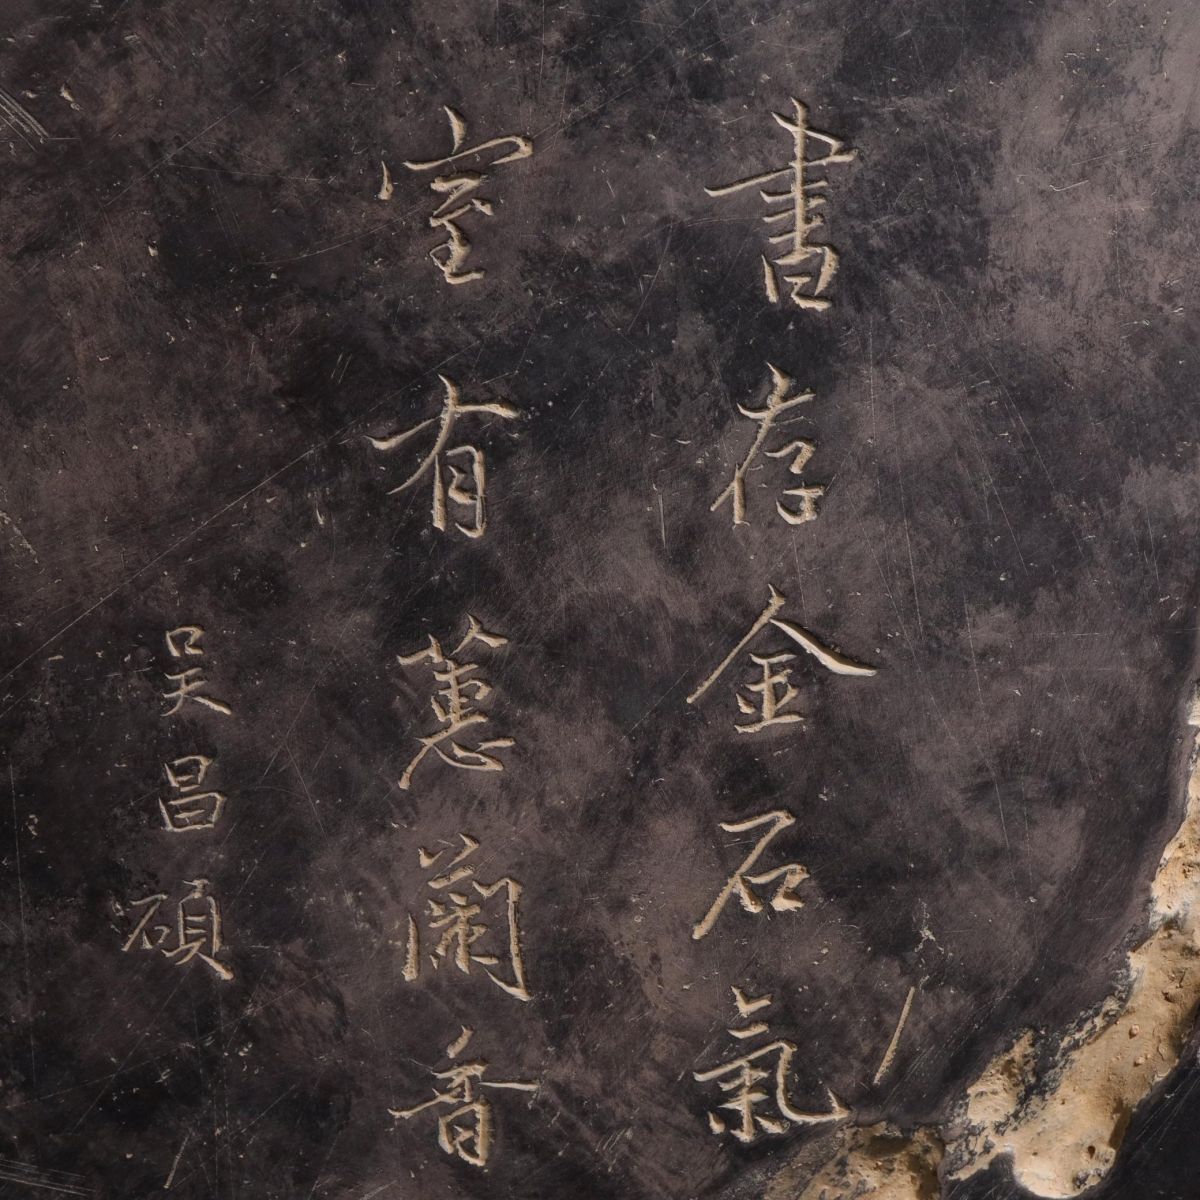 書存金石氣
室有蕙蘭香
吴昌碩